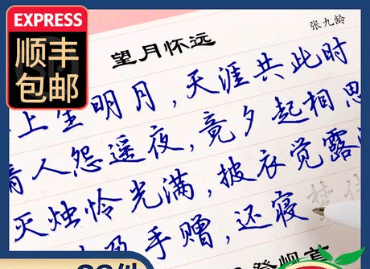 EXPRESS
顺丰
包邮
望月怀远
张九龄
上生明月，天涯共此时
情人怨遥夜，竟夕起相思
灭烛怜光满，披衣觉露
手赠，还寝梦佳